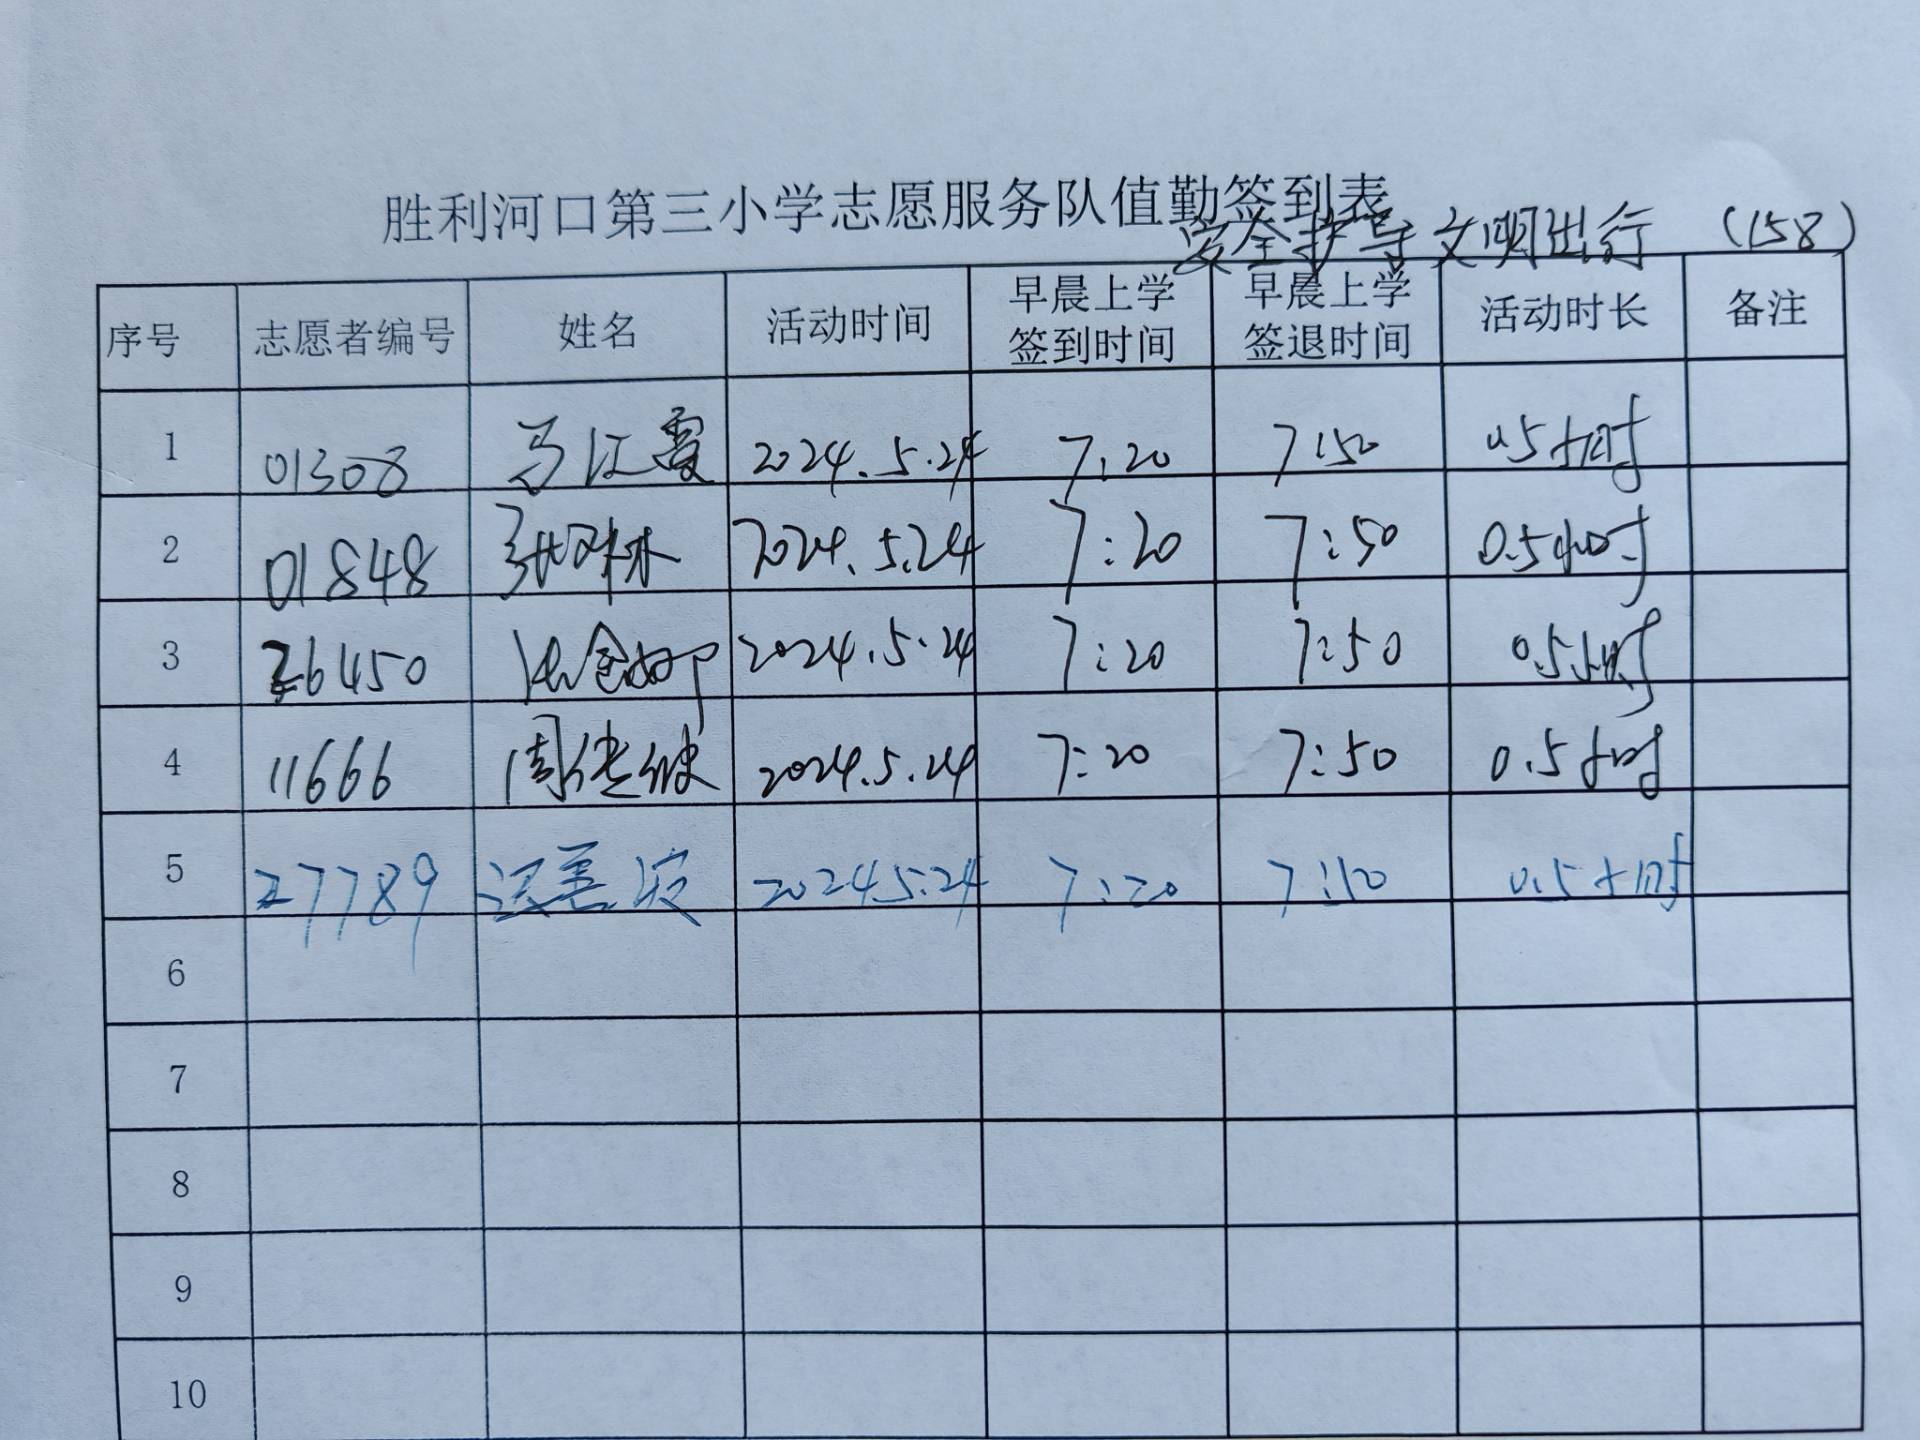 胜利河口第三小学志愿服务队值勤签到表
安全护导 文明出行 (158)
序号 志愿者编号 姓名 活动时间 早晨上学签到时间 早晨上学签退时间 活动时长 备注
1 01308 马江霞 2024.5.24 7:20 7:50 0.5小时
2 01848 2024.5.24 7:20 7:50 0.5小时
3 26450 2024.5.24 7:20 7:50 0.5小时
4 11666 周 2024.5.24 7:20 7:50 0.5小时
5 27789 2024.5.24 7:20 7:50 0.5小时
6
7
8
9
10